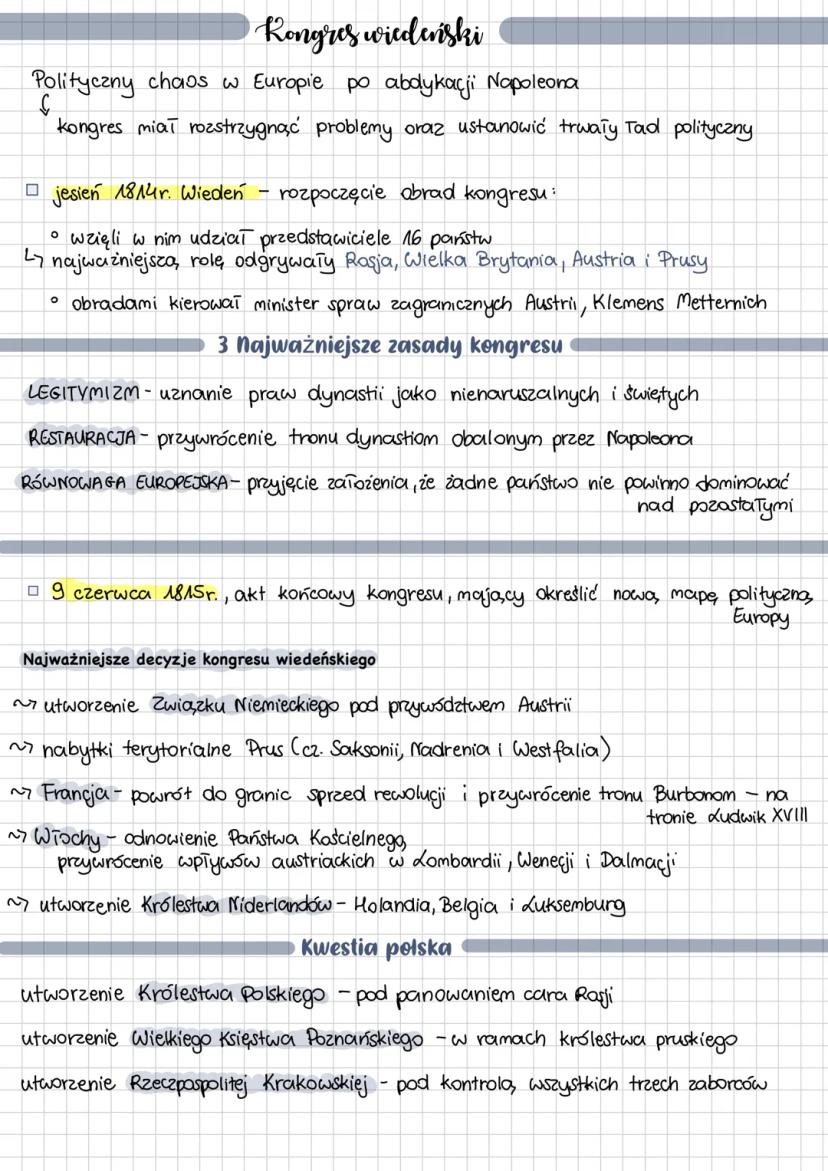 Kongres wiedeński
Polityczny chaos w Europie po abdykacji Napoleona
kongres miał rozstrzygnąć problemy oraz ustanowić trwały ład polityczny
jesień 1814r. Wiedeń - rozpoczęcie obrad kongresu:
wzięli w nim udział przedstawiciele 16 państw
najważniejszą rolę odgrywały Rosja, Wielka Brytania, Austria i Prusy
obradami kierował minister spraw zagranicznych Austrii, Klemens Metternich
3 Najważniejsze zasady kongresu
LEGITYMIZM - uznanie praw dynastii jako nienaruszalnych i świętych
RESTAURACJA - przywrócenie tronu dynastiom obalonym przez Napoleona
RÓWNOWAGA EUROPEJSKA - przyjęcie założenia, że żadne państwo nie powinno dominować
nad pozostałymi
9 czerwca 1815r., akt końcowy kongresu, mający określić nową mapę polityczną
Europy
Najważniejsze decyzje kongresu wiedeńskiego
utworzenie Związku Niemieckiego pod przywództwem Austrii
nabytki terytorialne Prus (cz. Saksonii, Nadrenia i Westfalia)
Francja - powrót do granic sprzed rewolucji i przywrócenie tronu Burbonom - na
tronie Ludwik XVIII
Włochy - odnowienie Państwa Kościelnego,
przywrócenie wpływów austriackich w Lombardii, Wenecji i Dalmacji
utworzenie Królestwa Niderlandów - Holandia, Belgia i Luksemburg
Kwestia polska
utworzenie Królestwa Polskiego - pod panowaniem cara Rosji
utworzenie Wielkiego Księstwa Poznańskiego - w ramach królestwa pruskiego
utworzenie Rzeczpospolitej Krakowskiej - pod kontrolą wszystkich trzech zaborców